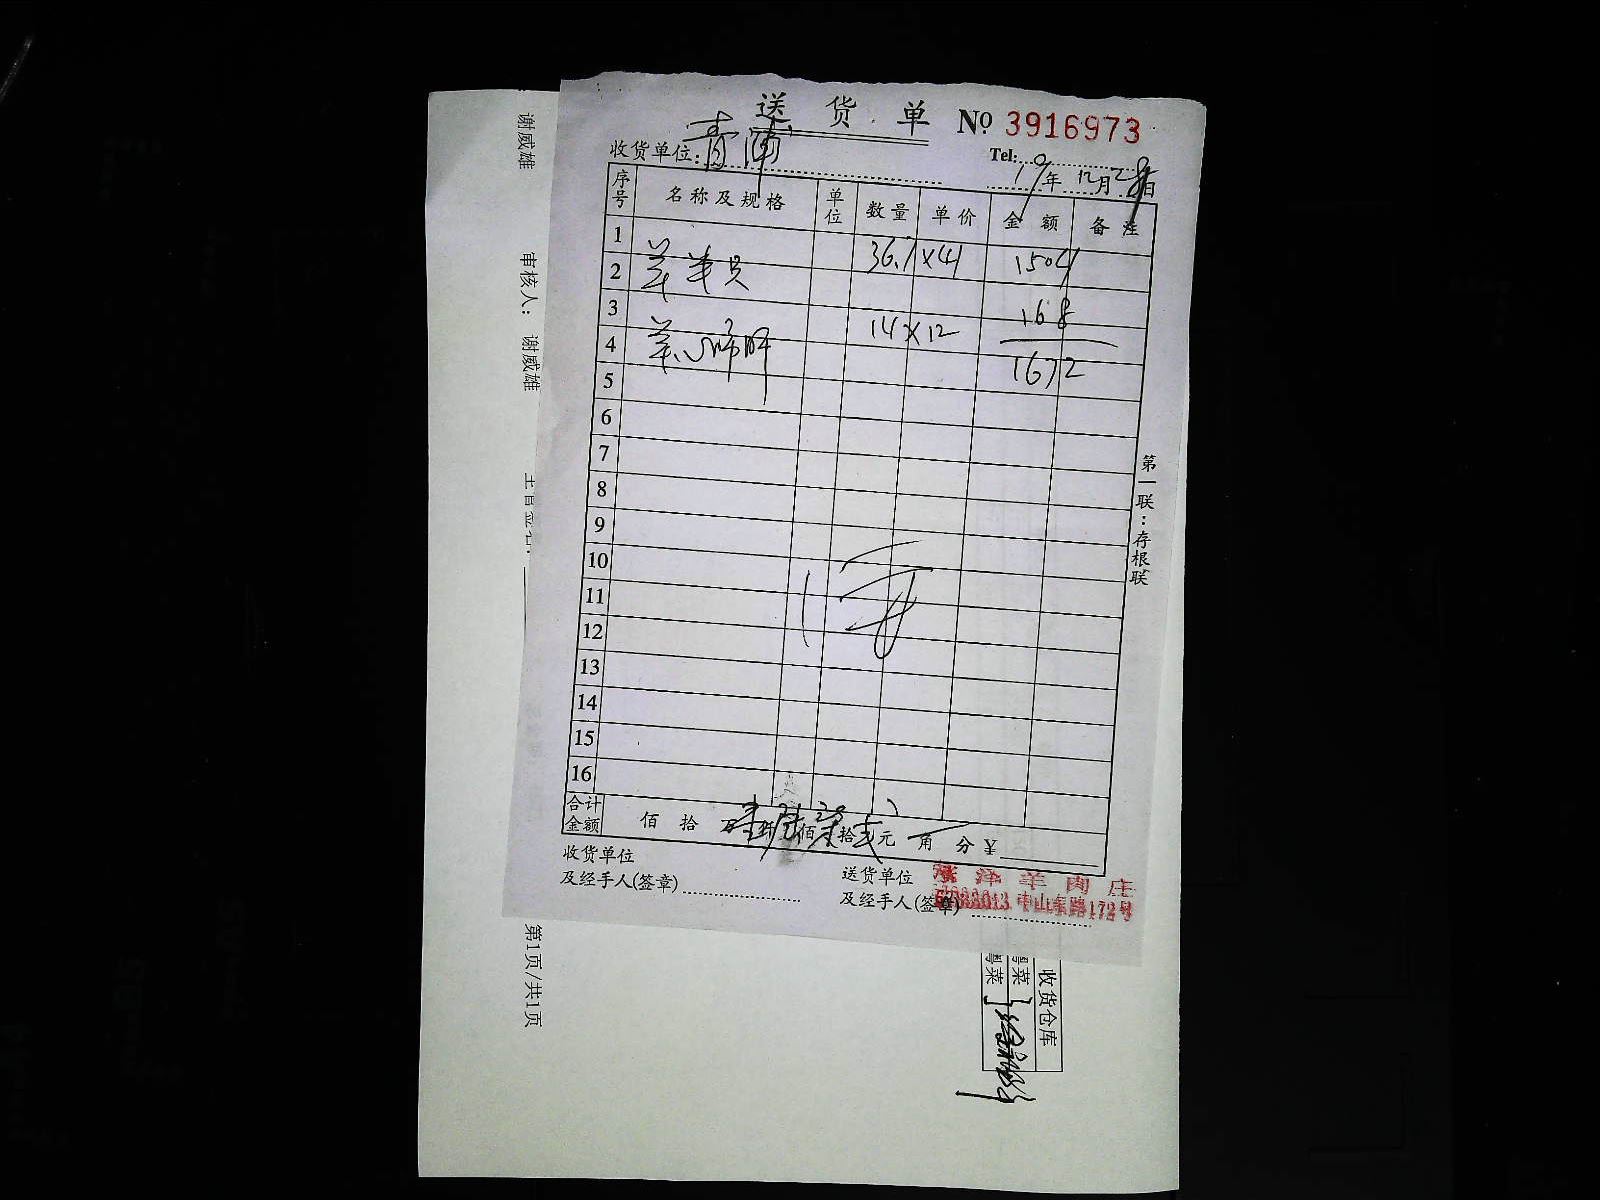 送货单 No 3916973
收货单位: 青浦
Tel:
19年12月28日
序号 名称及规格 单位 数量 单价 金额 备注
1
36.7×41 1504
2 羊
3
14×12 168
4 羊心肺肝
1672
5
6
7
8
9
10
11
12
13
14
15
16
合计金额 佰 拾 万壹仟陆佰柒拾贰元 角 分 ¥
收货单位
及经手人(签章)
送货单位
及经手人(签章)
羊肉庄
中山东路172号
第一联:存根联
谢威雄
审核人: 谢威雄
第1页/共1页
收货仓库
粤菜
粤菜